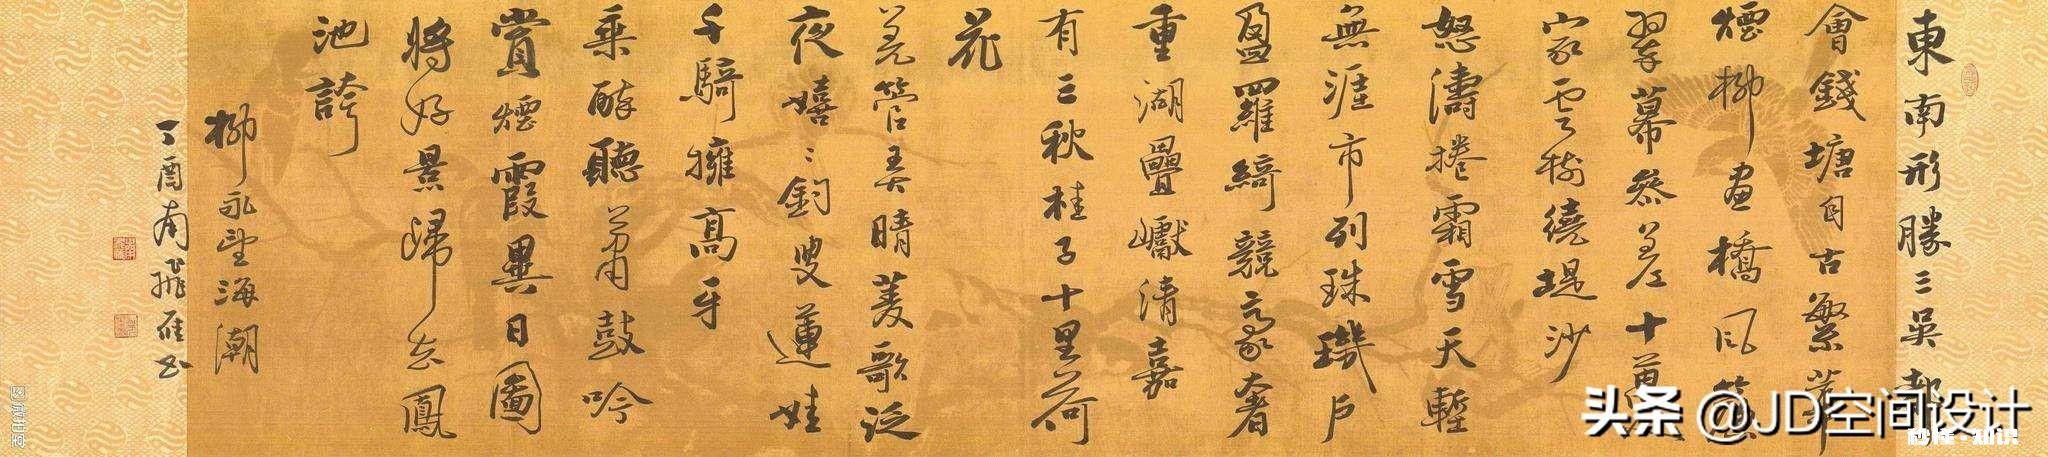 東南形勝三吳都
會錢塘自古繁華
煙柳畫橋風簾
翠幕參差十萬人
家雲樹繞堤沙
怒濤捲霜雪天塹
無涯市列珠璣戶
盈羅綺競豪奢
重湖疊巘清嘉
有三秋桂子十里荷
花
羌管弄晴菱歌泛
夜嬉〻釣叟蓮娃
千騎擁高牙
乘醉聽簫鼓吟
賞煙霞異日圖
將好景歸去鳳
池誇
柳永望海潮
丁酉南飛雁書
头条 @JD空间设计